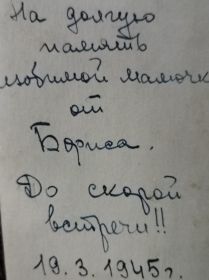 На долгую
память
любимой мамочк
от
Бориса.
До скорой
встречи!!
19.3.1945г.